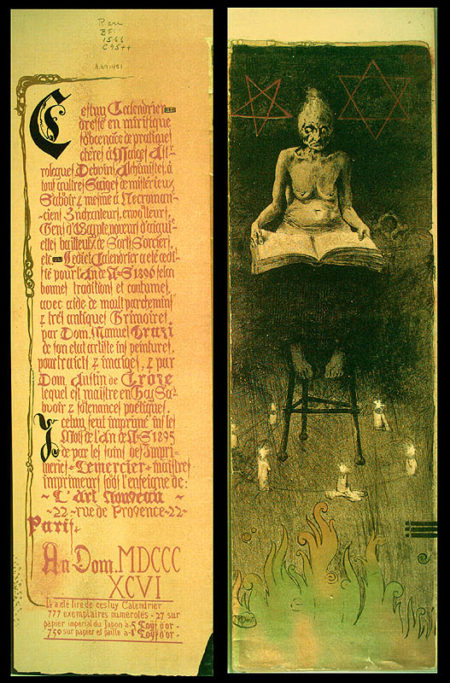 Rare
BF
1566
C95++
Cestuy Calendrier
dressé en mirifique
de pratiques
chères à Mages Ast-
rologues Debvins Alchimistes à
tous aultres Saiges de mistérieux
Sabvoir & mesme à Necroman-
ciens Enchanteurs, envoulteurs,
Gens d'Egypte noueurs d'aiguil-
ettes bailleurs de Sorts Sorciers,
etc Ledict Calendrier a esté édi-
fié pour l'An de N-S 1896 selon
bonnes traditions et coutumes,
avec aide de moult parchemins
& très antiques Grimoires,
par Dom. Manuel Orazi
de son estat artiste ins peintures,
pourtraicts & imaiges, & par
Dom. Austin de Croze
lequel est maistre en Gay Sa-
bvoir & poétiques.
seul imprimé ins les
Mois de l'An de N-S 1895
de par les des Impri-
meries Lemercier maistres
imprimeurs sous l'enseigne de:
~ L'Art Nouveau ~
~ 22 - rue de Provence - 22 -
Paris.
An Dom. MDCCC
XCVI
Il a esté tiré de cestuy Calendrier
777 exemplaires numérotés - 27 sur
papier impérial du Japon à 5 Loys d'or -
750 sur papier à Loys d'or -